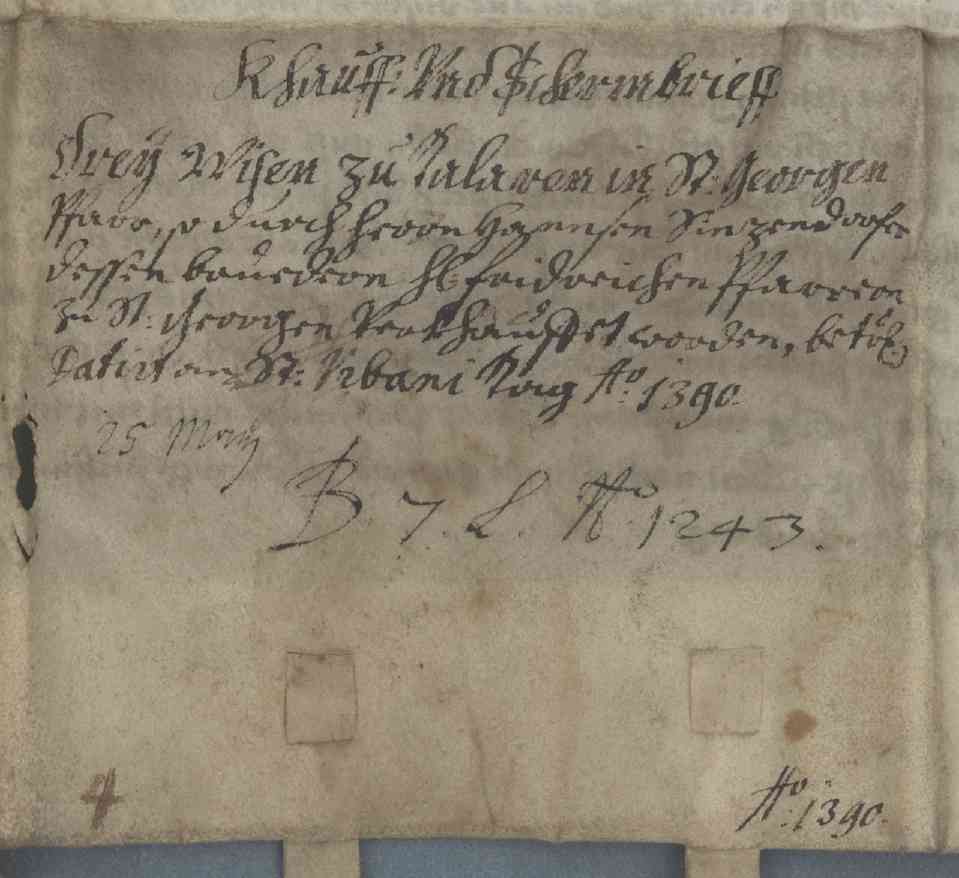 Khauff: Vnd Schermbrieff
Drey Wisen zu Talaren in St: Georgen
Pfarr, so durch herrn Hannsen Sinzendorfer
dessen bruedern H: fridrichen Pfarrern
zu St: Georgen Verkhauffet worden, betr:
Datirt an St: Vrbani Tag Ao: 1390
25 Maij
B 7. L. No. 1243.
4
Ao: 1390.